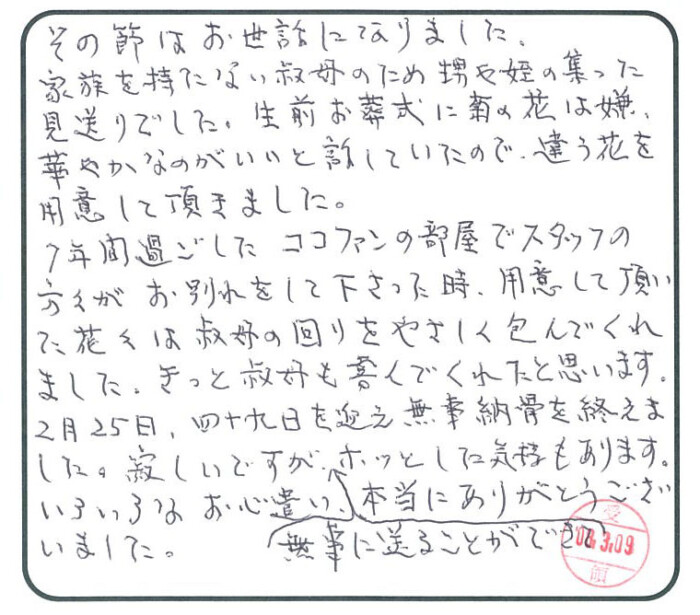 その節はお世話になりました、
家族を持たない叔母のため甥や姪の集った
見送りでした。生前お葬式に菊の花は嫌、
華やかなのがいいと話していたので、違う花を
用意して頂きました。
7年間過ごした ココファンの部屋でスタッフの
方々が お別れをして下さった時、用意して頂い
た花々は叔母の回りをやさしく包んでくれ
ました、きっと叔母も喜んでくれたと思います。
2月25日、四十九日を迎え無事納骨を終えま
した。寂しいですが、ホッとした気持もあります。
いろいろな お心遣い、本当にありがとうござ
いました。
無事に送ることができて
受
08.3.09
領